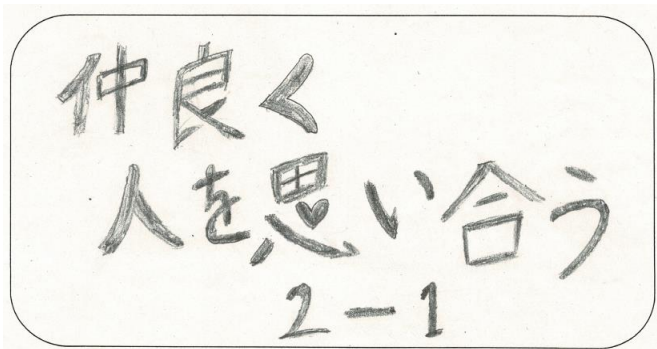 仲良く
人を思い合う
2-1